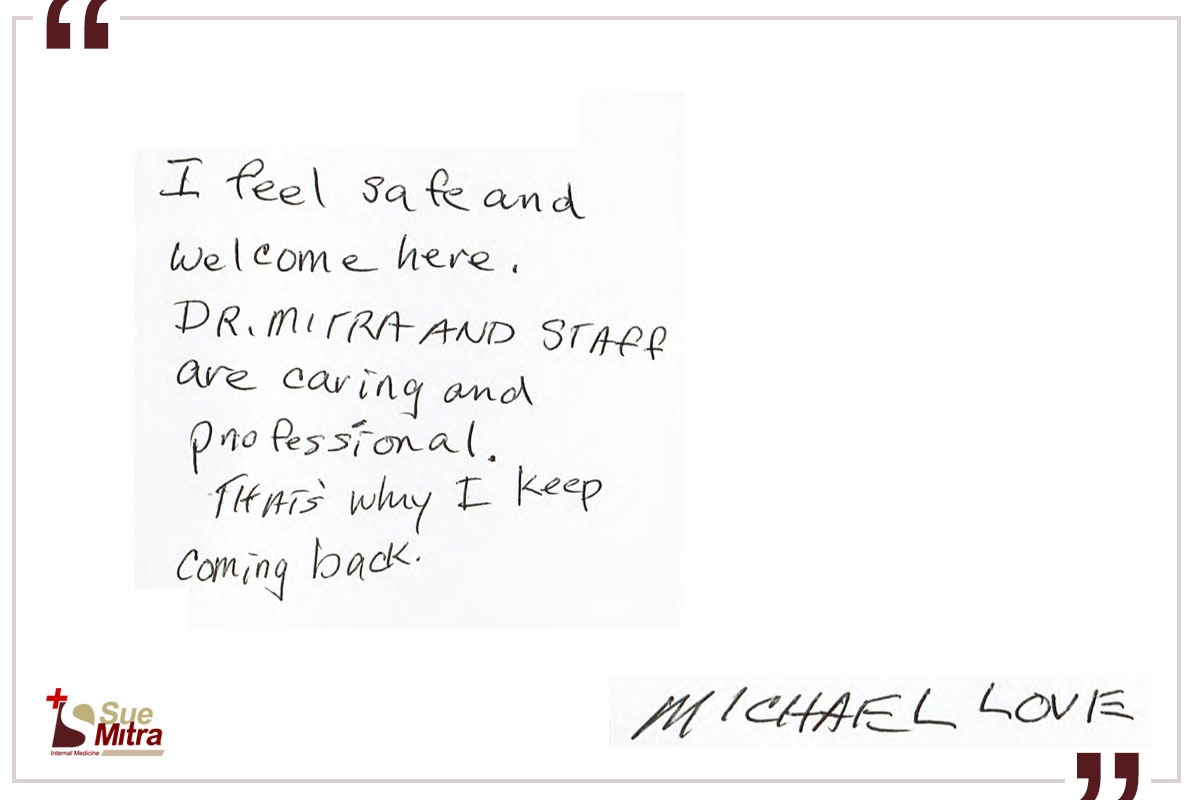 “
I feel safe and
welcome here.
DR. MITRA AND STAFF
are caring and
professional.
THATS' why I keep
coming back.
MICHAEL LOVE
Sue
Mitra
Internal Medicine
”